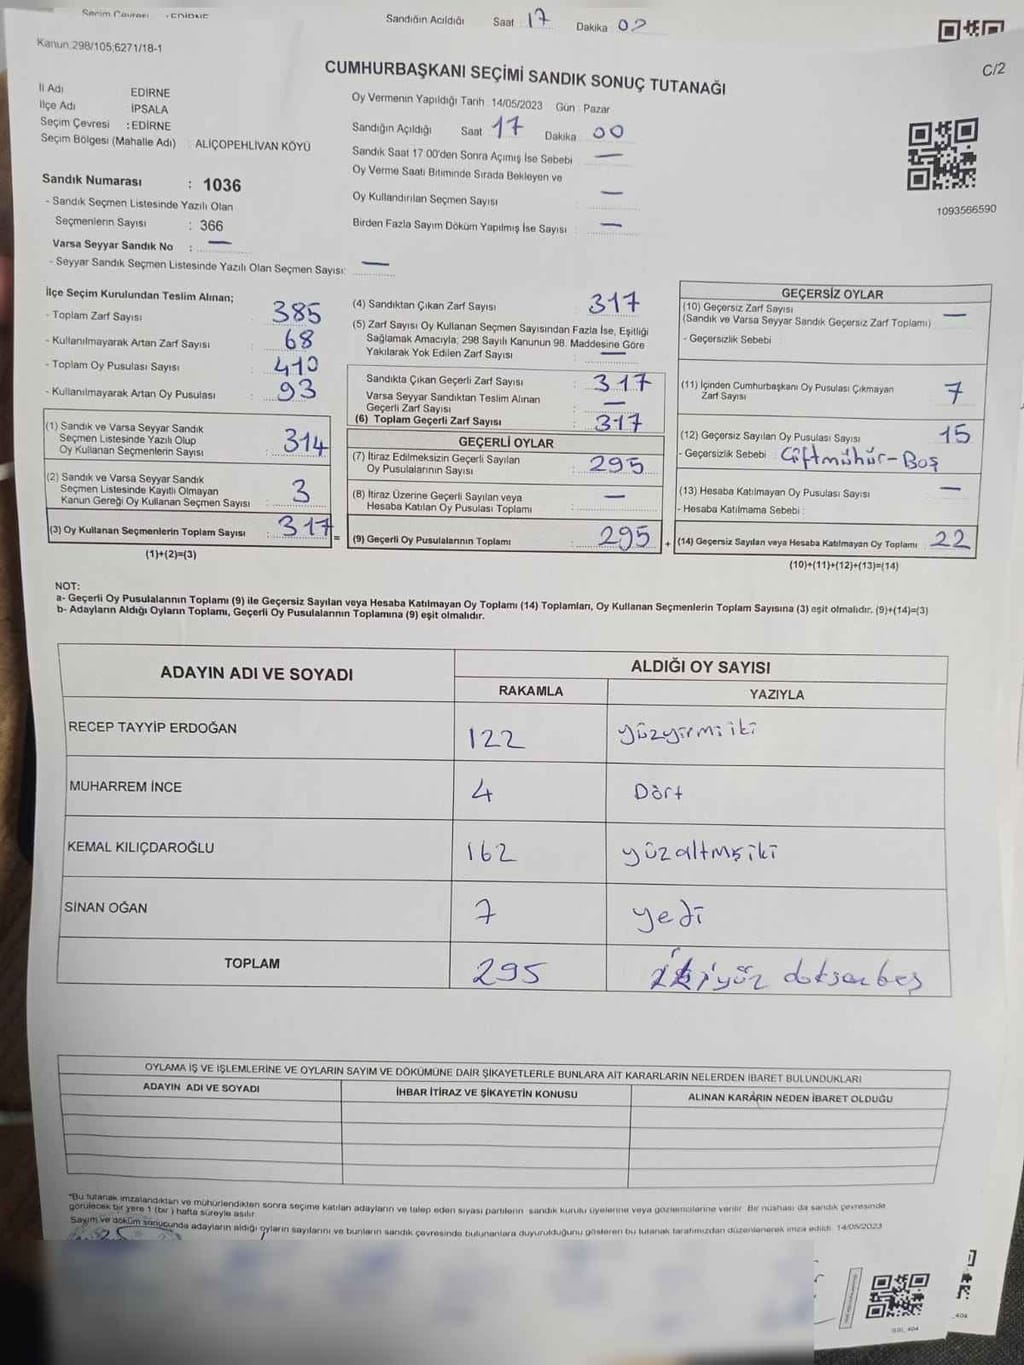 Seçim Çevresi : EDİRNE
Sandığın Açıldığı Saat 17 Dakika 00
Kanun:298/105;6271/18-1
C/2
CUMHURBAŞKANI SEÇİMİ SANDIK SONUÇ TUTANAĞI
İl Adı EDİRNE
İlçe Adı İPSALA
Seçim Çevresi : EDİRNE
Seçim Bölgesi (Mahalle Adı) : ALİÇOPEHLİVAN KÖYÜ
Oy Vermenin Yapıldığı Tarih : 14/05/2023 Gün : Pazar
Sandığın Açıldığı Saat 17 Dakika 00
Sandık Saat 17:00'den Sonra Açımış İse Sebebi —
Oy Verme Saati Bitiminde Sırada Bekleyen ve
Oy Kullandırılan Seçmen Sayısı —
Birden Fazla Sayım Döküm Yapılmış İse Sayısı : —
1093566590
Sandık Numarası : 1036
- Sandık Seçmen Listesinde Yazılı Olan
Seçmenlerin Sayısı : 366
Varsa Seyyar Sandık No : —
- Seyyar Sandık Seçmen Listesinde Yazılı Olan Seçmen Sayısı: —
İlçe Seçim Kurulundan Teslim Alınan;
- Toplam Zarf Sayısı : 385
- Kullanılmayarak Artan Zarf Sayısı : 68
- Toplam Oy Pusulası Sayısı : 410
- Kullanılmayarak Artan Oy Pusulası : 93
(1) Sandık ve Varsa Seyyar Sandık
Seçmen Listesinde Yazılı Olup
Oy Kullanan Seçmenlerin Sayısı : 314
(2) Sandık ve Varsa Seyyar Sandık
Seçmen Listesinde Kayıtlı Olmayan
Kanun Gereği Oy Kullanan Seçmen Sayısı : 3
(3) Oy Kullanan Seçmenlerin Toplam Sayısı : 317 =
(1)+(2)=(3)
(4) Sandıktan Çıkan Zarf Sayısı 317
(5) Zarf Sayısı Oy Kullanan Seçmen Sayısından Fazla İse, Eşitliği
Sağlamak Amacıyla; 298 Sayılı Kanunun 98. Maddesine Göre
Yakılarak Yok Edilen Zarf Sayısı : —
Sandıkta Çıkan Geçerli Zarf Sayısı : 317
Varsa Seyyar Sandıktan Teslim Alınan
Geçerli Zarf Sayısı : —
(6) Toplam Geçerli Zarf Sayısı : 317
GEÇERLİ OYLAR
(7) İtiraz Edilmeksizin Geçerli Sayılan
Oy Pusulalarının Sayısı : 295
(8) İtiraz Üzerine Geçerli Sayılan veya
Hesaba Katılan Oy Pusulası Toplamı : —
(9) Geçerli Oy Pusulalarının Toplamı : 295 +
GEÇERSİZ OYLAR
(10) Geçersiz Zarf Sayısı
(Sandık ve Varsa Seyyar Sandık Geçersiz Zarf Toplamı) —
- Geçersizlik Sebebi
(11) İçinden Cumhurbaşkanı Oy Pusulası Çıkmayan
Zarf Sayısı 7
(12) Geçersiz Sayılan Oy Pusulası Sayısı 15
- Geçersizlik Sebebi Çiftmühür-Boş
(13) Hesaba Katılmayan Oy Pusulası Sayısı —
- Hesaba Katılmama Sebebi :
(14) Geçersiz Sayılan veya Hesaba Katılmayan Oy Toplamı 22
(10)+(11)+(12)+(13)=(14)
NOT:
a- Geçerli Oy Pusulalarının Toplamı (9) ile Geçersiz Sayılan veya Hesaba Katılmayan Oy Toplamı (14) Toplamları, Oy Kullanan Seçmenlerin Toplam Sayısına (3) eşit olmalıdır. (9)+(14)=(3)
b- Adayların Aldığı Oyların Toplamı, Geçerli Oy Pusulalarının Toplamına (9) eşit olmalıdır.
ADAYIN ADI VE SOYADI ALDIĞI OY SAYISI
RAKAMLA YAZIYLA
RECEP TAYYİP ERDOĞAN 122 yüzyirmiiki
MUHARREM İNCE 4 Dört
KEMAL KILIÇDAROĞLU 162 yüzaltmşiki
SİNAN OĞAN 7 yedi
TOPLAM 295 ikiyüz doksanbeş
OYLAMA İŞ VE İŞLEMLERİNE VE OYLARIN SAYIM VE DÖKÜMÜNE DAİR ŞİKAYETLERLE BUNLARA AİT KARARLARIN NELERDEN İBARET BULUNDUKLARI
ADAYIN ADI VE SOYADI İHBAR İTİRAZ VE ŞİKAYETİN KONUSU ALINAN KARARIN NEDEN İBARET OLDUĞU
*Bu tutanak imzalandıktan ve mühürlendikten sonra seçime katılan adayların ve talep eden siyasi partilerin sandık kurulu üyelerine veya gözlemcilerine verilir. Bir nüshası da sandık çevresinde
görülecek bir yere 1 (bir) hafta süreyle asılır.
Sayım ve döküm sonucunda adayların aldığı oyların sayılarını ve bunların sandık çevresinde bulunanlara duyurulduğunu gösteren bu tutanak tarafımızdan düzenlenerek imza edildi. 14/05/2023